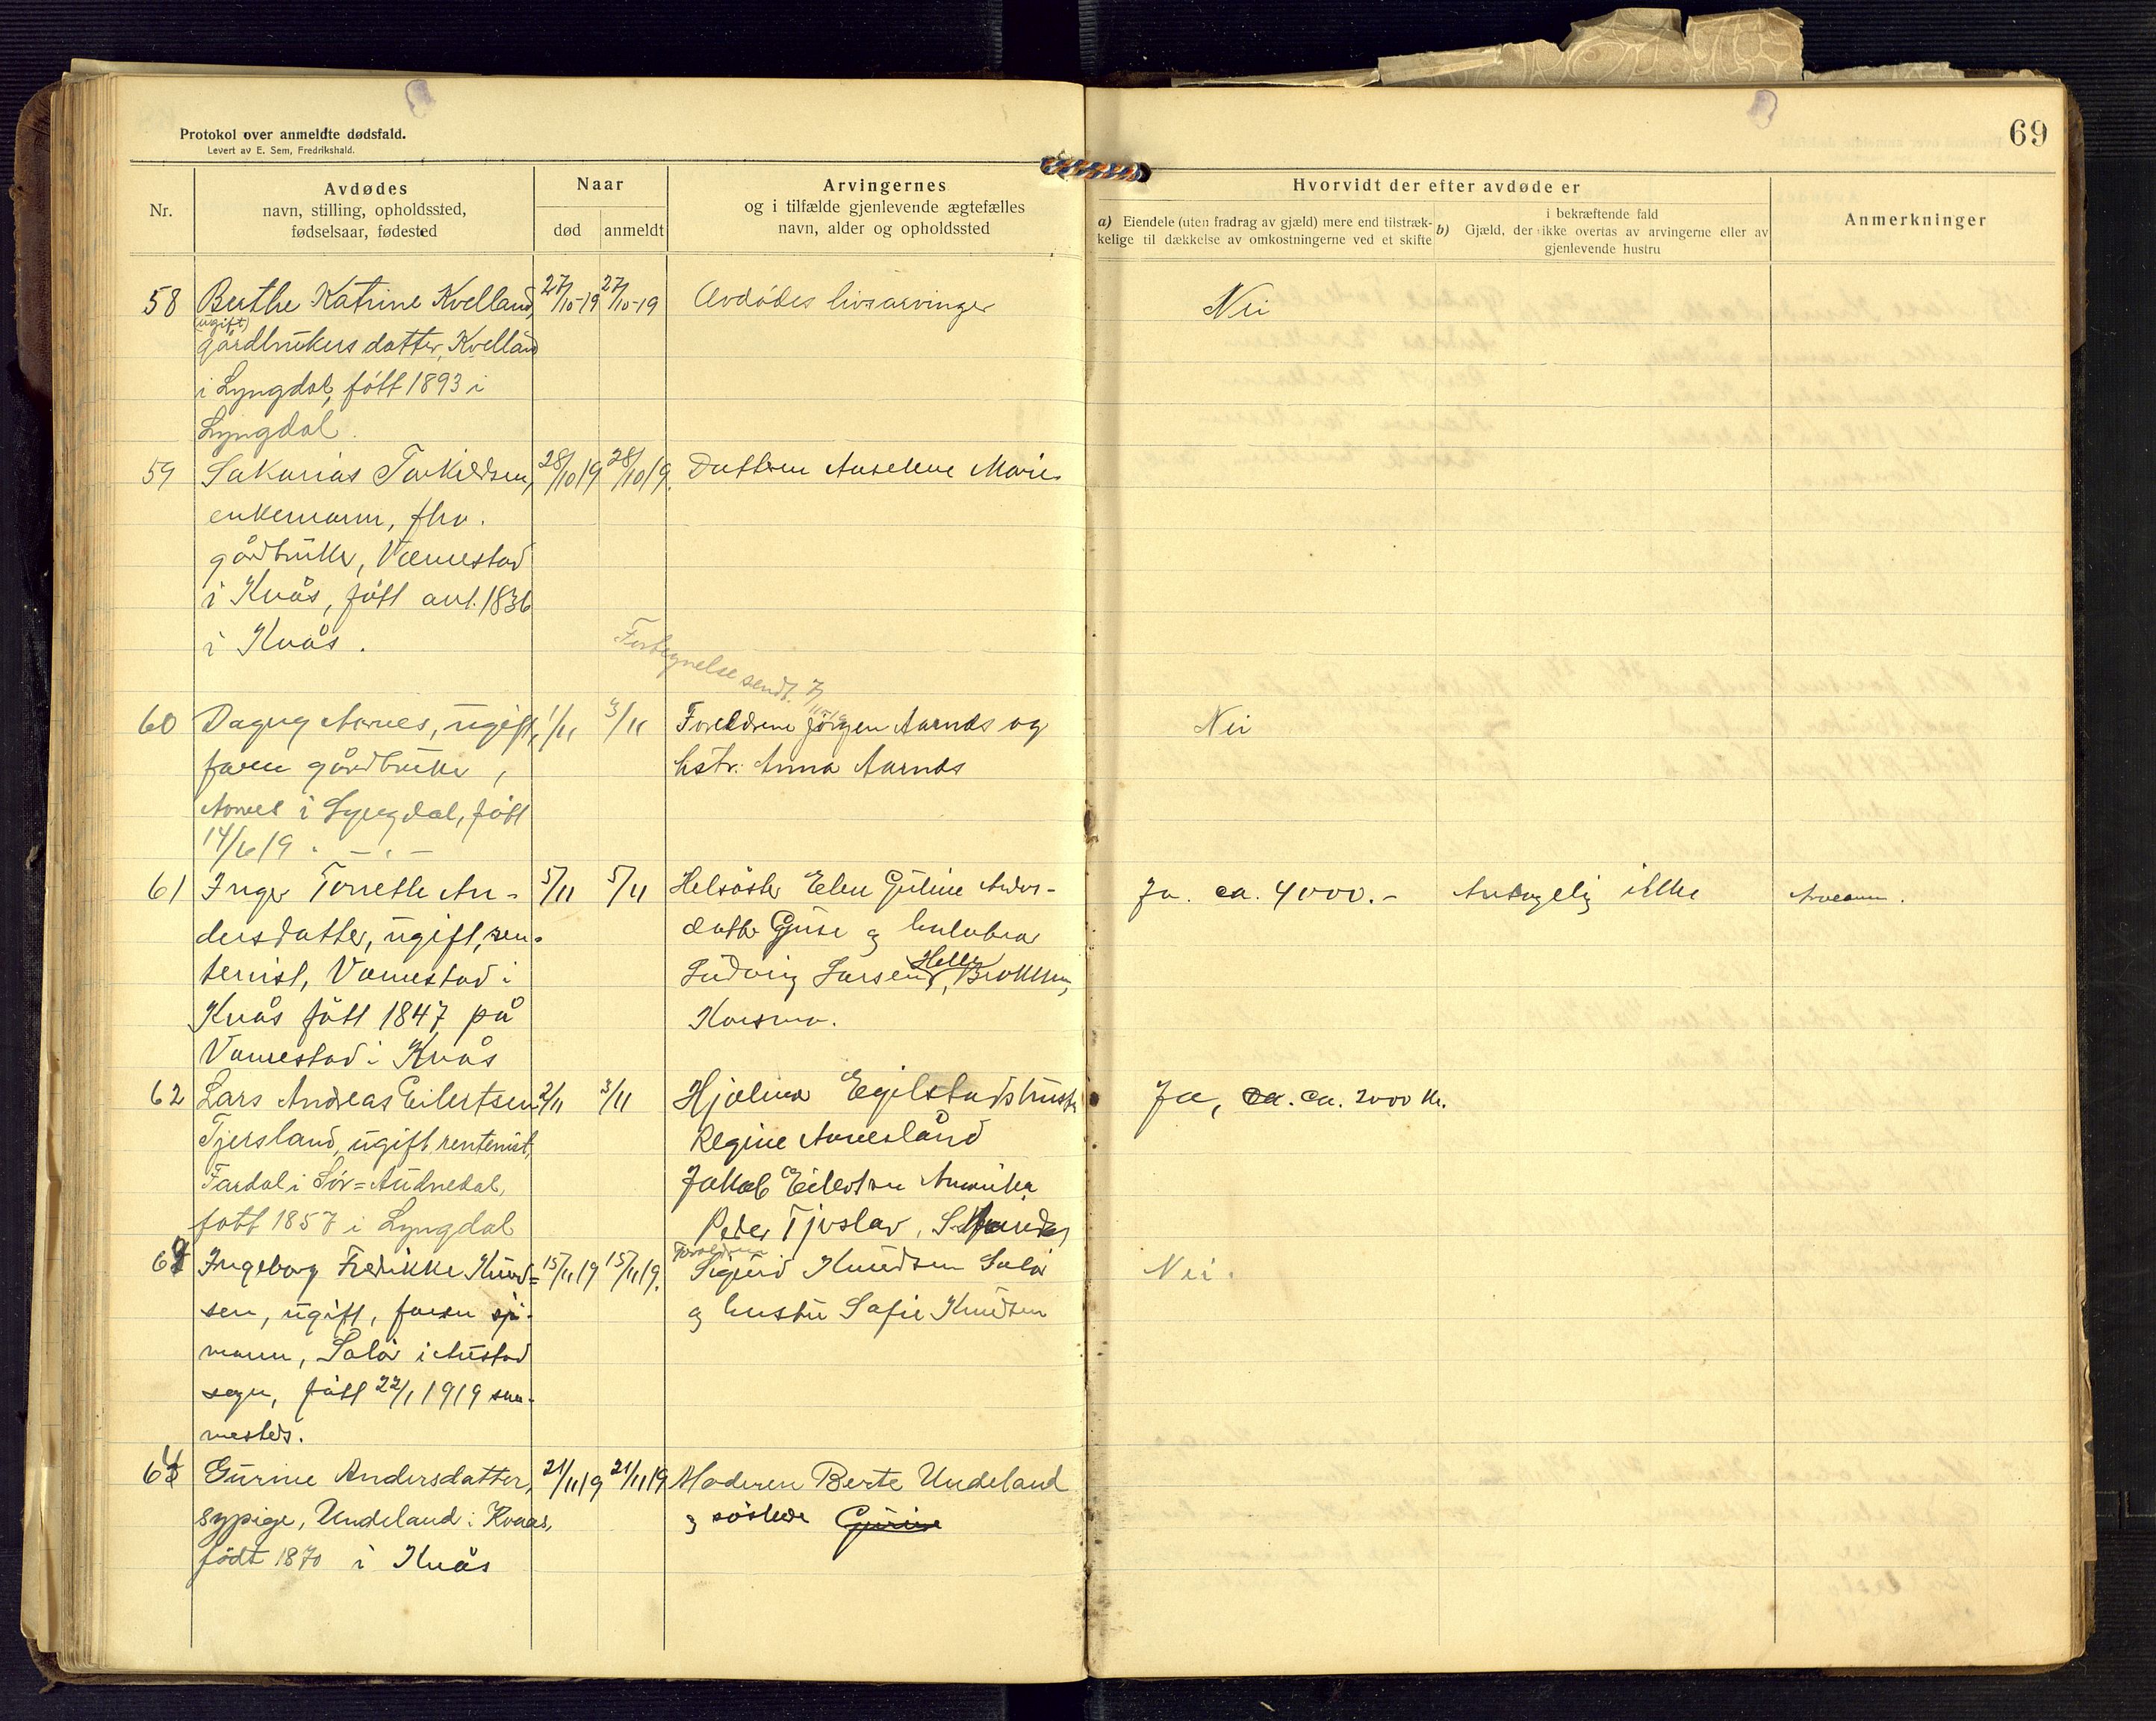 Protokol over anmeldte dødsfald.
Levert av E. Sem, Fredrikshald.
69
Nr.
Avdødes
navn, stilling, opholdssted,
fødselsaar, fødested
Naar
død
anmeldt
Arvingernes
og i tilfælde gjenlevende ægtefælles
navn, alder og opholdssted
Hvorvidt der efter avdøde er
a) Eiendele (uten fradrag av gjæld) mere end tilstræk-
kelige til dækkelse av omkostningerne ved et skifte
i bekræftende fald
b) Gjæld, der ikke overtas av arvingerne eller av
gjenlevende hustru
Anmerkninger
58 Berthe Katrine Kvelland, 27/10-19 27/10-19 Avdødes livsarvinger Nei
(ugift)
gårdbrukers datter, Kvelland
i Lyngdal, født 1893 i
Lyngdal.
59 Sakarias Torkildsen, 28/10 19 28/10 19. Datteren Anselene Marie
enkemann, fhv.
gårdbruker, Vemestad
i Kvås, født ant. 1836
i Kvås.
Fortegnelse sendt. 7/11-19
60 Dagny Aarnes, ugift, 1/11 3/11 Foreldrene Jörgen Aarnes og Nei
faren gårdbruker,
hstr. Anna Aarnes
Aarnes i Lyngdal, født
14/6 19. — " —
61 Inger Tonette An- 5/11 5/11 Helsöster Elen Guline Anders- Ja. ca. 4000.- Antagelig ikke
dersdatter, ugift, ren-
datter Guse og halvbror
ternist, Vemestad i
Ludvig Larsen Helle, Brokken,
Kvås født 1847 på
Konsmo.
Vemestad i Kvås
62 Lars Andreas Eilertsen 2/11 3/11 Hjalmar Egilstad Ja, ca. ca. 2000 kr.
Tjersland, ugift, rentenist,
Regine Aamesland
Fardal i Sör=Audnedal,
Jakob Eilertsen Amerika
født 1857 i Lyngdal
Peder Tjersland,
Foreldrene
Ingeborg Fredrikke Knud= 15/11 19 15/11 19. Sigurd Knudsen Salör Nei.
sen, ugift, faren sjö-
og hustru Sofie Knudsen
mann, Salör i Austad
sogn, født 22/1 1919 sam-
mesteds.
64 Gurine Andersdatter, 21/11 19 21/11 19 Moderen Berte Undeland
sypige, Undeland i Kvaas,
og söstre Gurine
født 1870 i Kvås